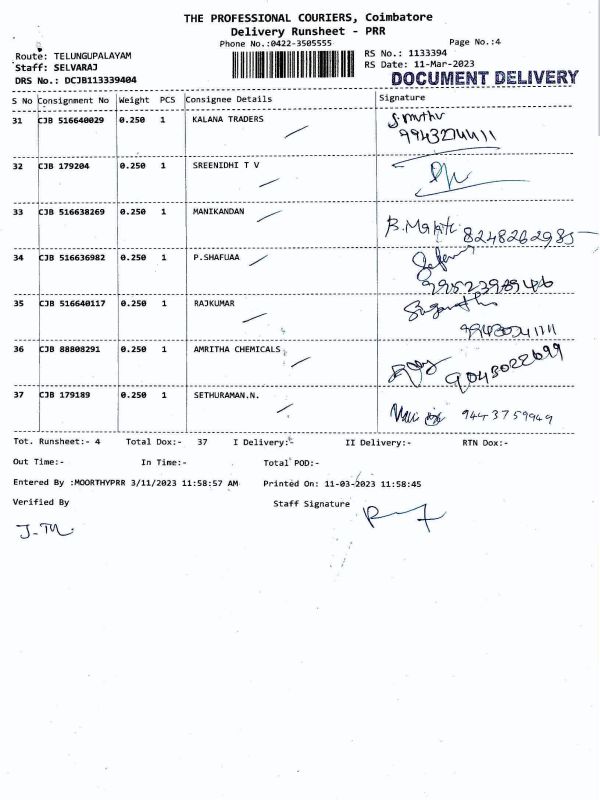 THE PROFESSIONAL COURIERS, Coimbatore
Delivery Runsheet - PRR
Phone No.:0422-3505555 Page No.:4
Route: TELUNGUPALAYAM RS No.: 1133394
Staff: SELVARAJ RS Date: 11-Mar-2023
DRS No.: DCJB113339404 DOCUMENT DELIVERY
S No Consignment No Weight PCS Consignee Details Signature
31 CJB 516640029 0.250 1 KALANA TRADERS
32 CJB 179204 0.250 1 SREENIDHI T V
33 CJB 516638269 0.250 1 MANIKANDAN 8248262985
34 CJB 516636982 0.250 1 P.SHAFUAA
35 CJB 516640117 0.250 1 RAJKUMAR
36 CJB 88808291 0.250 1 AMRITHA CHEMICALS 9043022699
37 CJB 179189 0.250 1 SETHURAMAN.N. 9443759949
Tot. Runsheet:- 4 Total Dox:- 37 I Delivery:- II Delivery:- RTN Dox:-
Out Time:- In Time:- Total POD:-
Entered By :MOORTHYPRR 3/11/2023 11:58:57 AM Printed On: 11-03-2023 11:58:45
Verified By Staff Signature